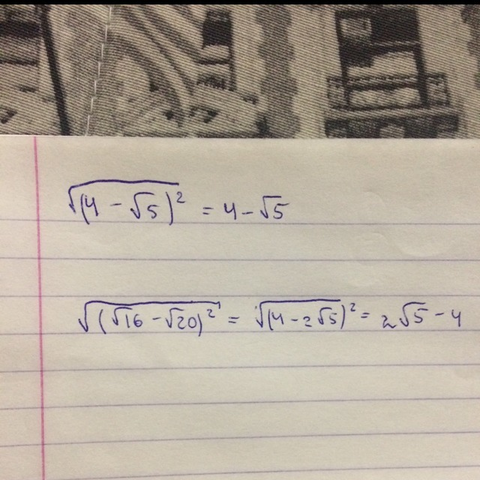 √(4 - √5)² = 4 - √5
√(√16 - √20)² = √(4 - 2√5)² = 2√5 - 4